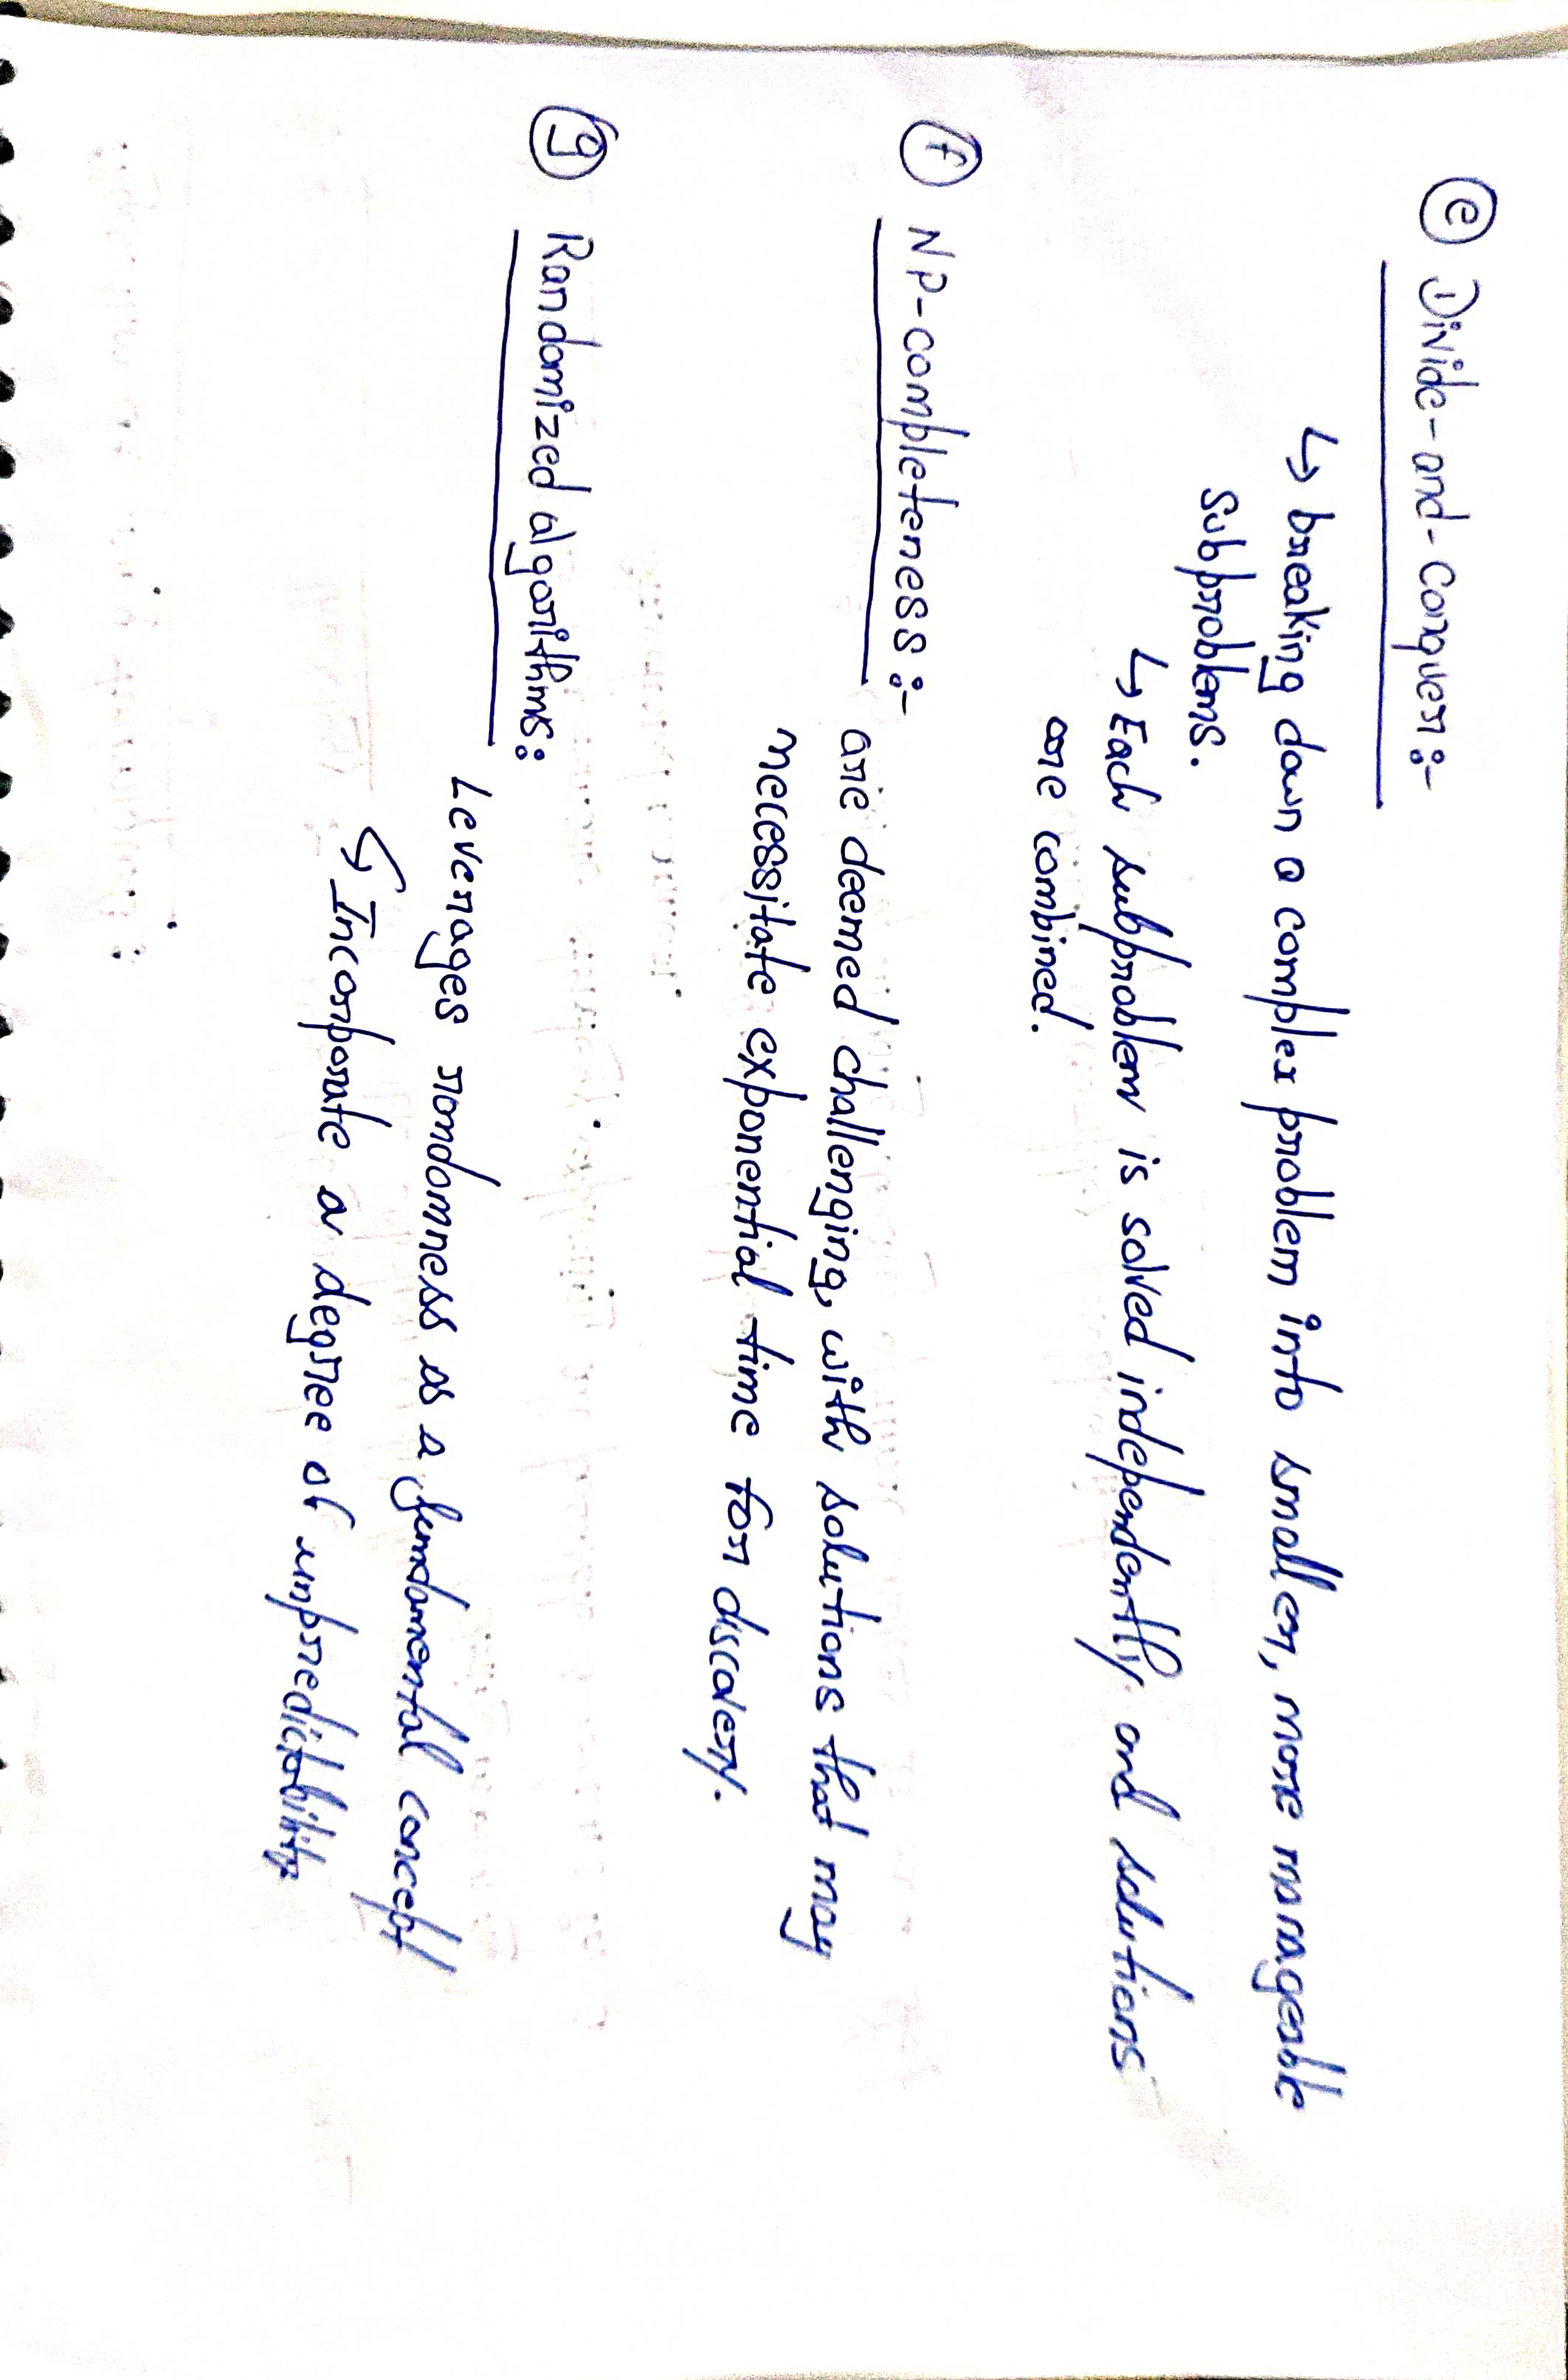 ⓔ Divide-and-Conquer :-
↳ breaking down a complex problem into smaller, more manageable
subproblems.
↳ Each subproblem is solved independently and solutions
are combined.
ⓕ NP-completeness :-
are deemed challenging, with solutions that may
necessitate exponential time for discovery.
ⓖ Randomized algorithms:
Leverages randomness as a fundamental concept
↳ Incorporate a degree of unpredictability